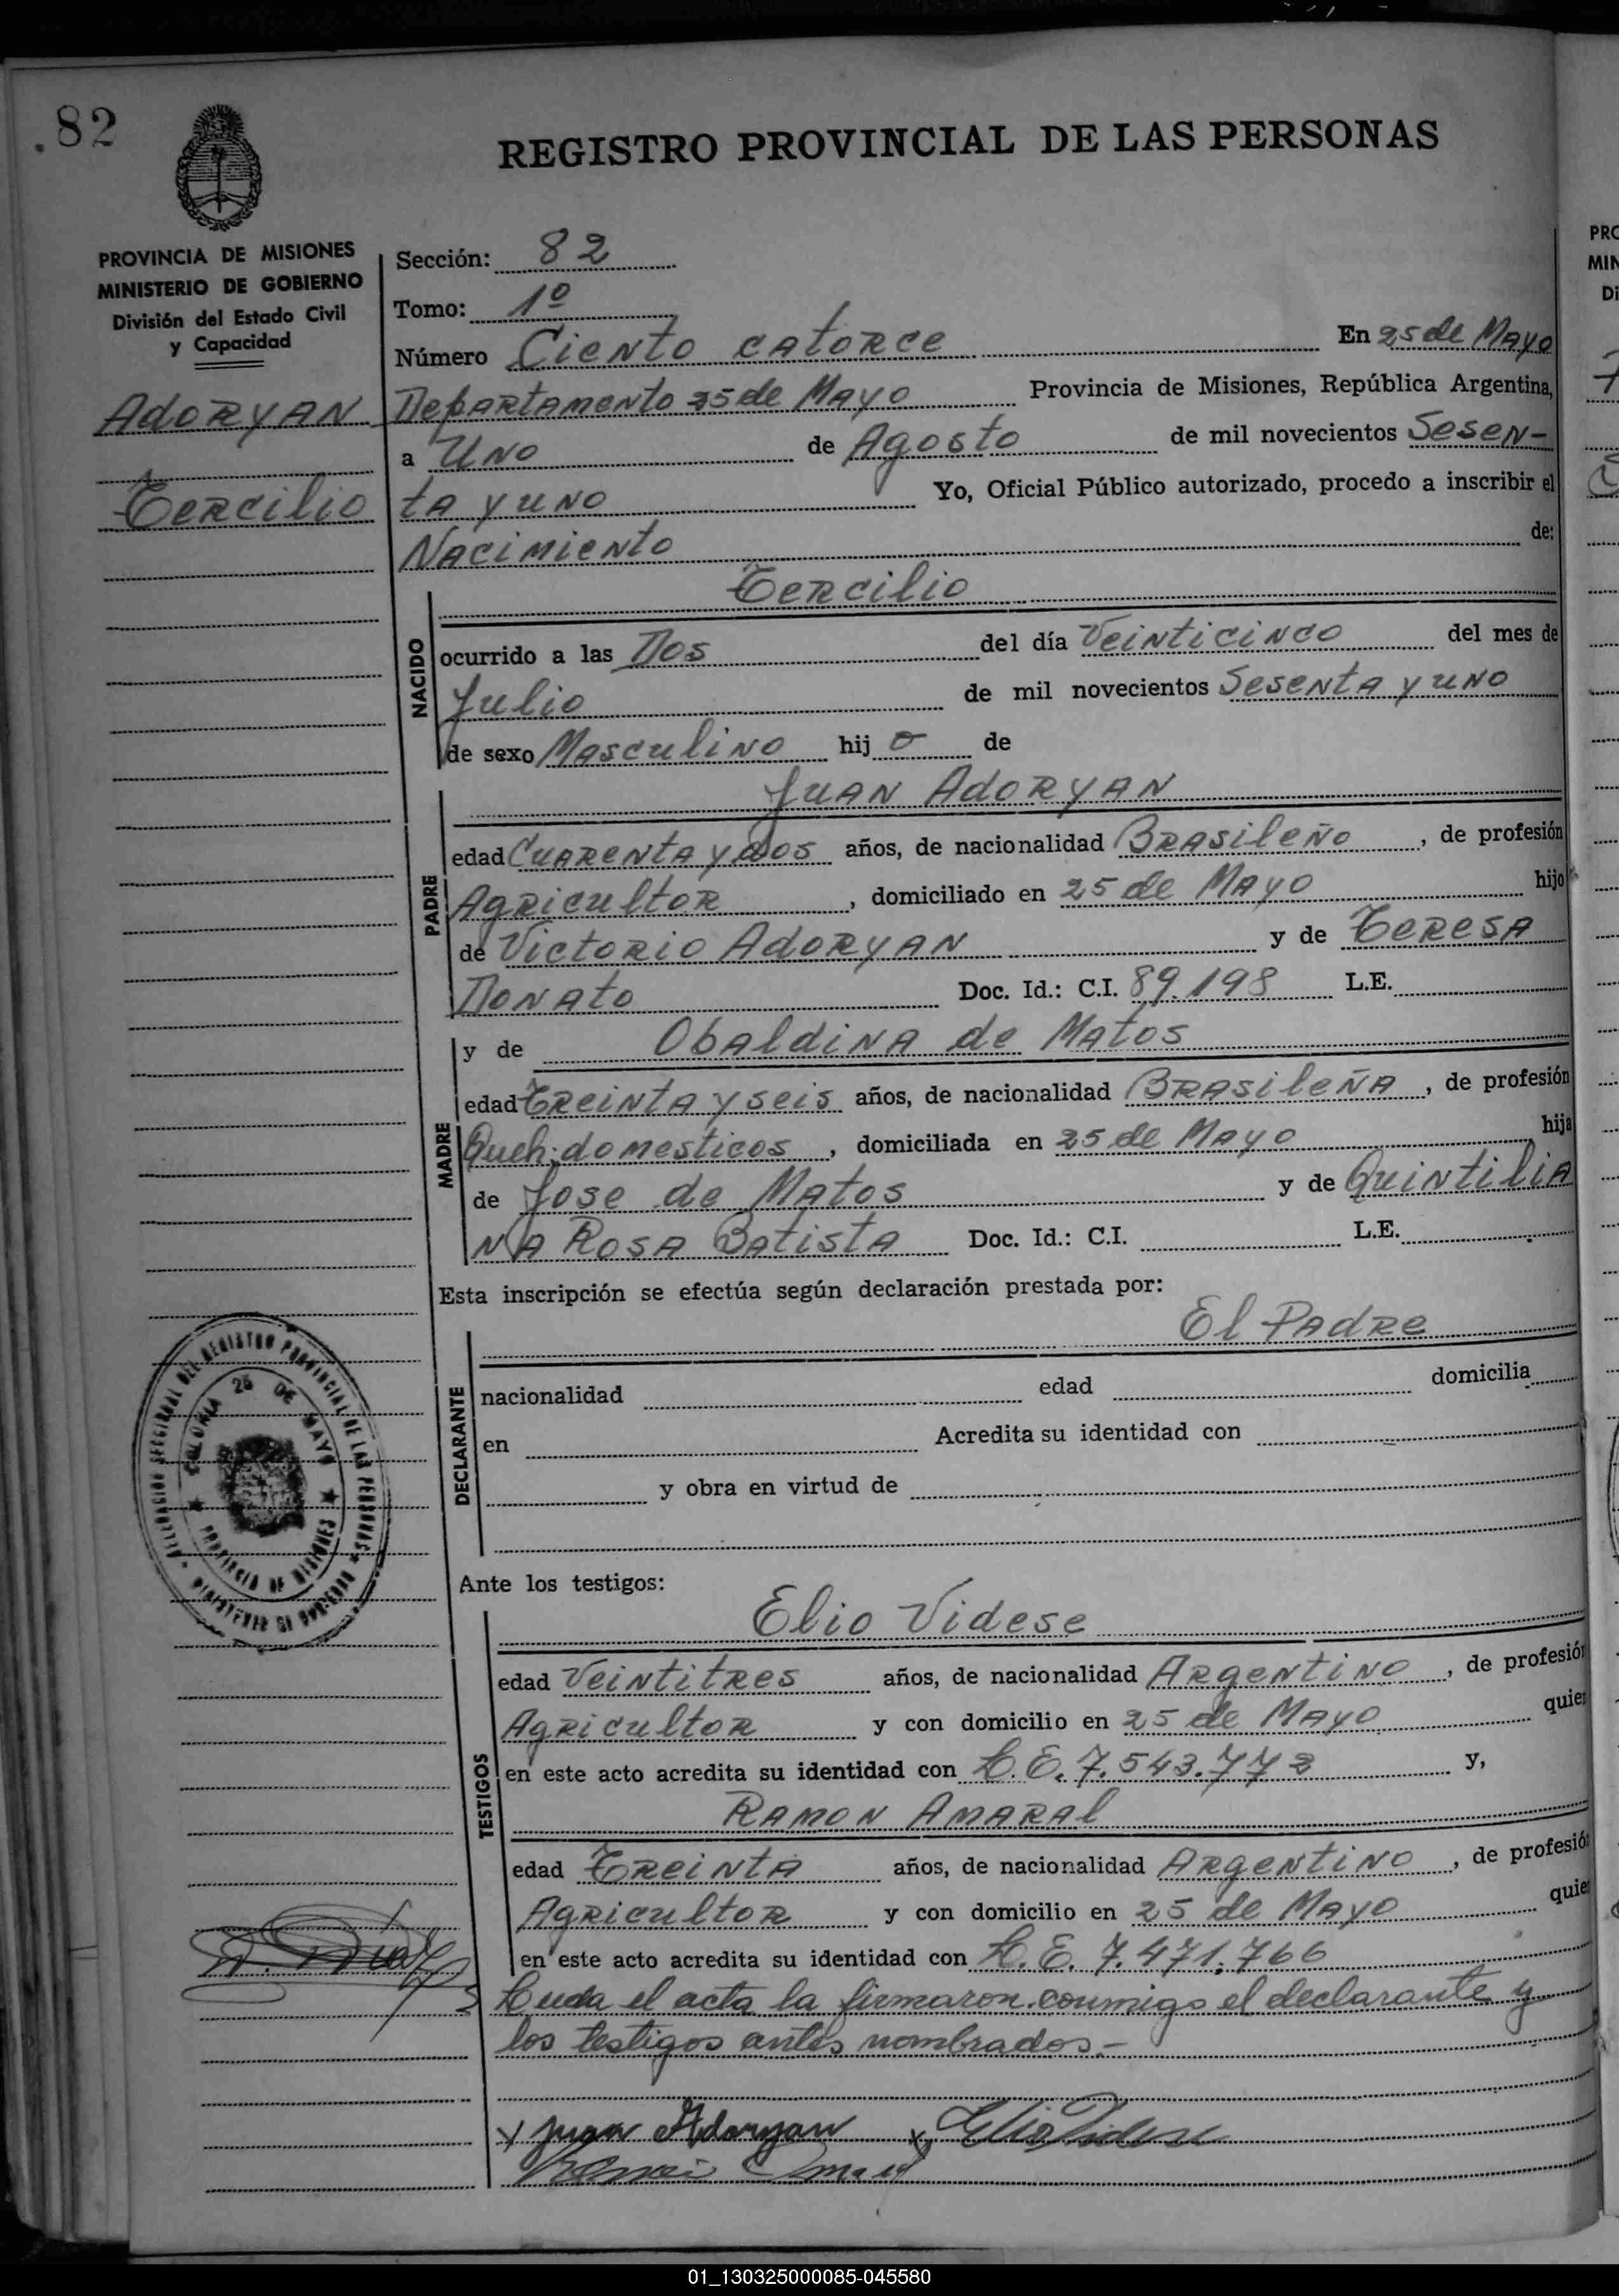 .82
REGISTRO PROVINCIAL DE LAS PERSONAS
PROVINCIA DE MISIONES
MINISTERIO DE GOBIERNO
División del Estado Civil
y Capacidad
Adoryan
Tercilio
Sección: 82
Tomo: 1º
Número Ciento catorce En 25 de Mayo
Departamento 25 de Mayo Provincia de Misiones, República Argentina,
a Uno de Agosto de mil novecientos Sesen-
ta y uno Yo, Oficial Público autorizado, procedo a inscribir el
Nacimiento de:
NACIDO
Tercilio
ocurrido a las Dos del día Veinticinco del mes de
Julio de mil novecientos Sesenta y uno
de sexo Masculino hijo de
PADRE
Juan Adoryan
edad Cuarenta y dos años, de nacionalidad Brasileño, de profesión
Agricultor, domiciliado en 25 de Mayo hijo
de Victorio Adoryan y de Teresa
Donato Doc. Id.: C.I. 89.198 L.E.
MADRE
y de Obaldina de Matos
edad Treinta y seis años, de nacionalidad Brasileña, de profesión
Queh. domesticos, domiciliada en 25 de Mayo hija
de Jose de Matos y de Quintilia
na Rosa Batista Doc. Id.: C.I. L.E.
Esta inscripción se efectúa según declaración prestada por:
DECLARANTE
El Padre
nacionalidad edad domicilia
en Acredita su identidad con
y obra en virtud de
DELEGACION SECCIONAL DEL REGISTRO PROVINCIAL DE LAS PERSONAS
COLONIA 25 DE MAYO
PROVINCIA DE MISIONES
MINISTERIO DE GOBIERNO
Ante los testigos:
TESTIGOS
Elio Videse
edad Veintitres años, de nacionalidad Argentino, de profesión
Agricultor y con domicilio en 25 de Mayo quien
en este acto acredita su identidad con L.E. 7.543.773 y,
Ramon Amaral
edad Treinta años, de nacionalidad Argentino, de profesión
Agricultor y con domicilio en 25 de Mayo quie
en este acto acredita su identidad con L.E. 7.471.766
Leida el acta la firmaron conmigo el declarante y
los testigos antes nombrados.-
x Juan Adoryan x Elio Videse
PRO
MIN
Di
01_130325000085-045580